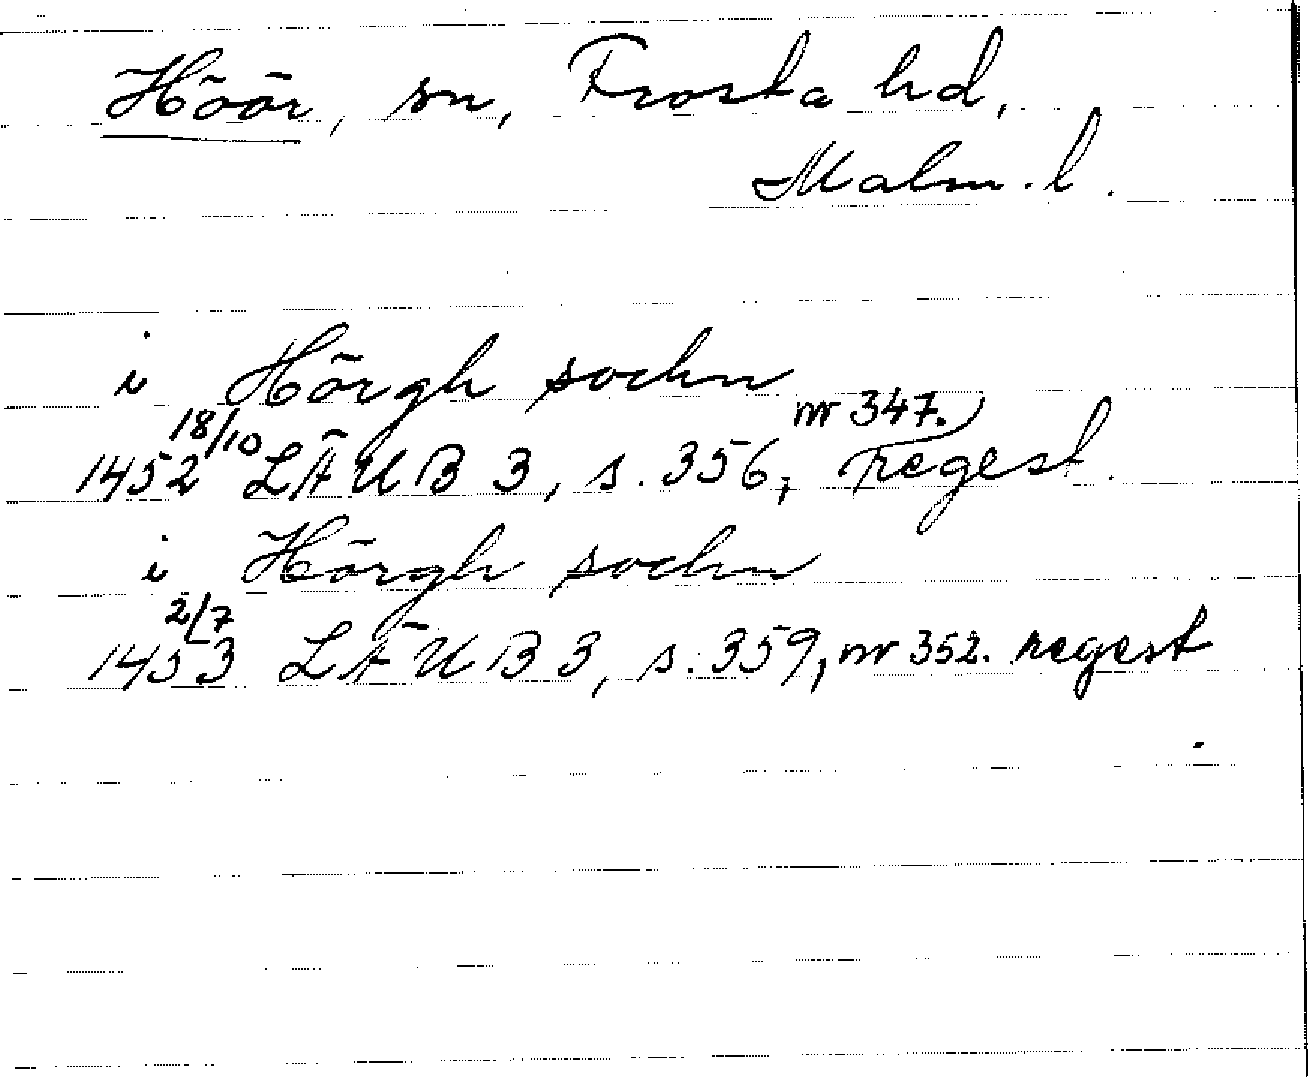 Höör, sn, Frosta hd,
Malm. l.
i Hörgh sochn
1452 18/10 LÄUB 3, s. 356, nr 347. regest.
i Hörgh sochn
1453 2/7 LÄUB 3, s. 359, nr 352. regest